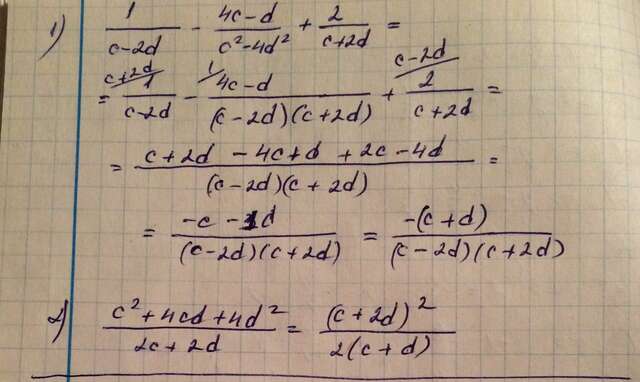 1) 1/(c-2d) - (4c-d)/(c²-4d²) + 2/(c+2d) =
= c+2d/ 1/(c-2d) - 1/ (4c-d)/((c-2d)(c+2d)) + c-2d/ 2/(c+2d) =
= (c+2d -4c+d +2c-4d)/((c-2d)(c+2d)) =
= (-c-1d)/((c-2d)(c+2d)) = (-(c+d))/((c-2d)(c+2d))
2) (c²+4cd+4d²)/(2c+2d) = (c+2d)²/(2(c+d))